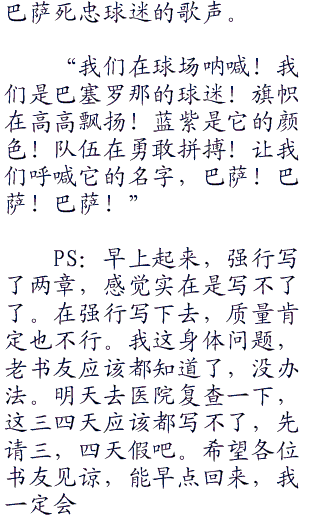 巴萨死忠球迷的歌声。
“我们在球场呐喊！我
们是巴塞罗那的球迷！旗帜
在高高飘扬！蓝紫是它的颜
色！队伍在勇敢拼搏！让我
们呼喊它的名字，巴萨！巴
萨！巴萨！”
PS：早上起来，强行写
了两章，感觉实在是写不了
了。在强行写下去，质量肯
定也不行。我这身体问题，
老书友应该都知道了，没办
法。明天去医院复查一下，
这三四天应该都写不了，先
请三，四天假吧。希望各位
书友见谅，能早点回来，我
一定会